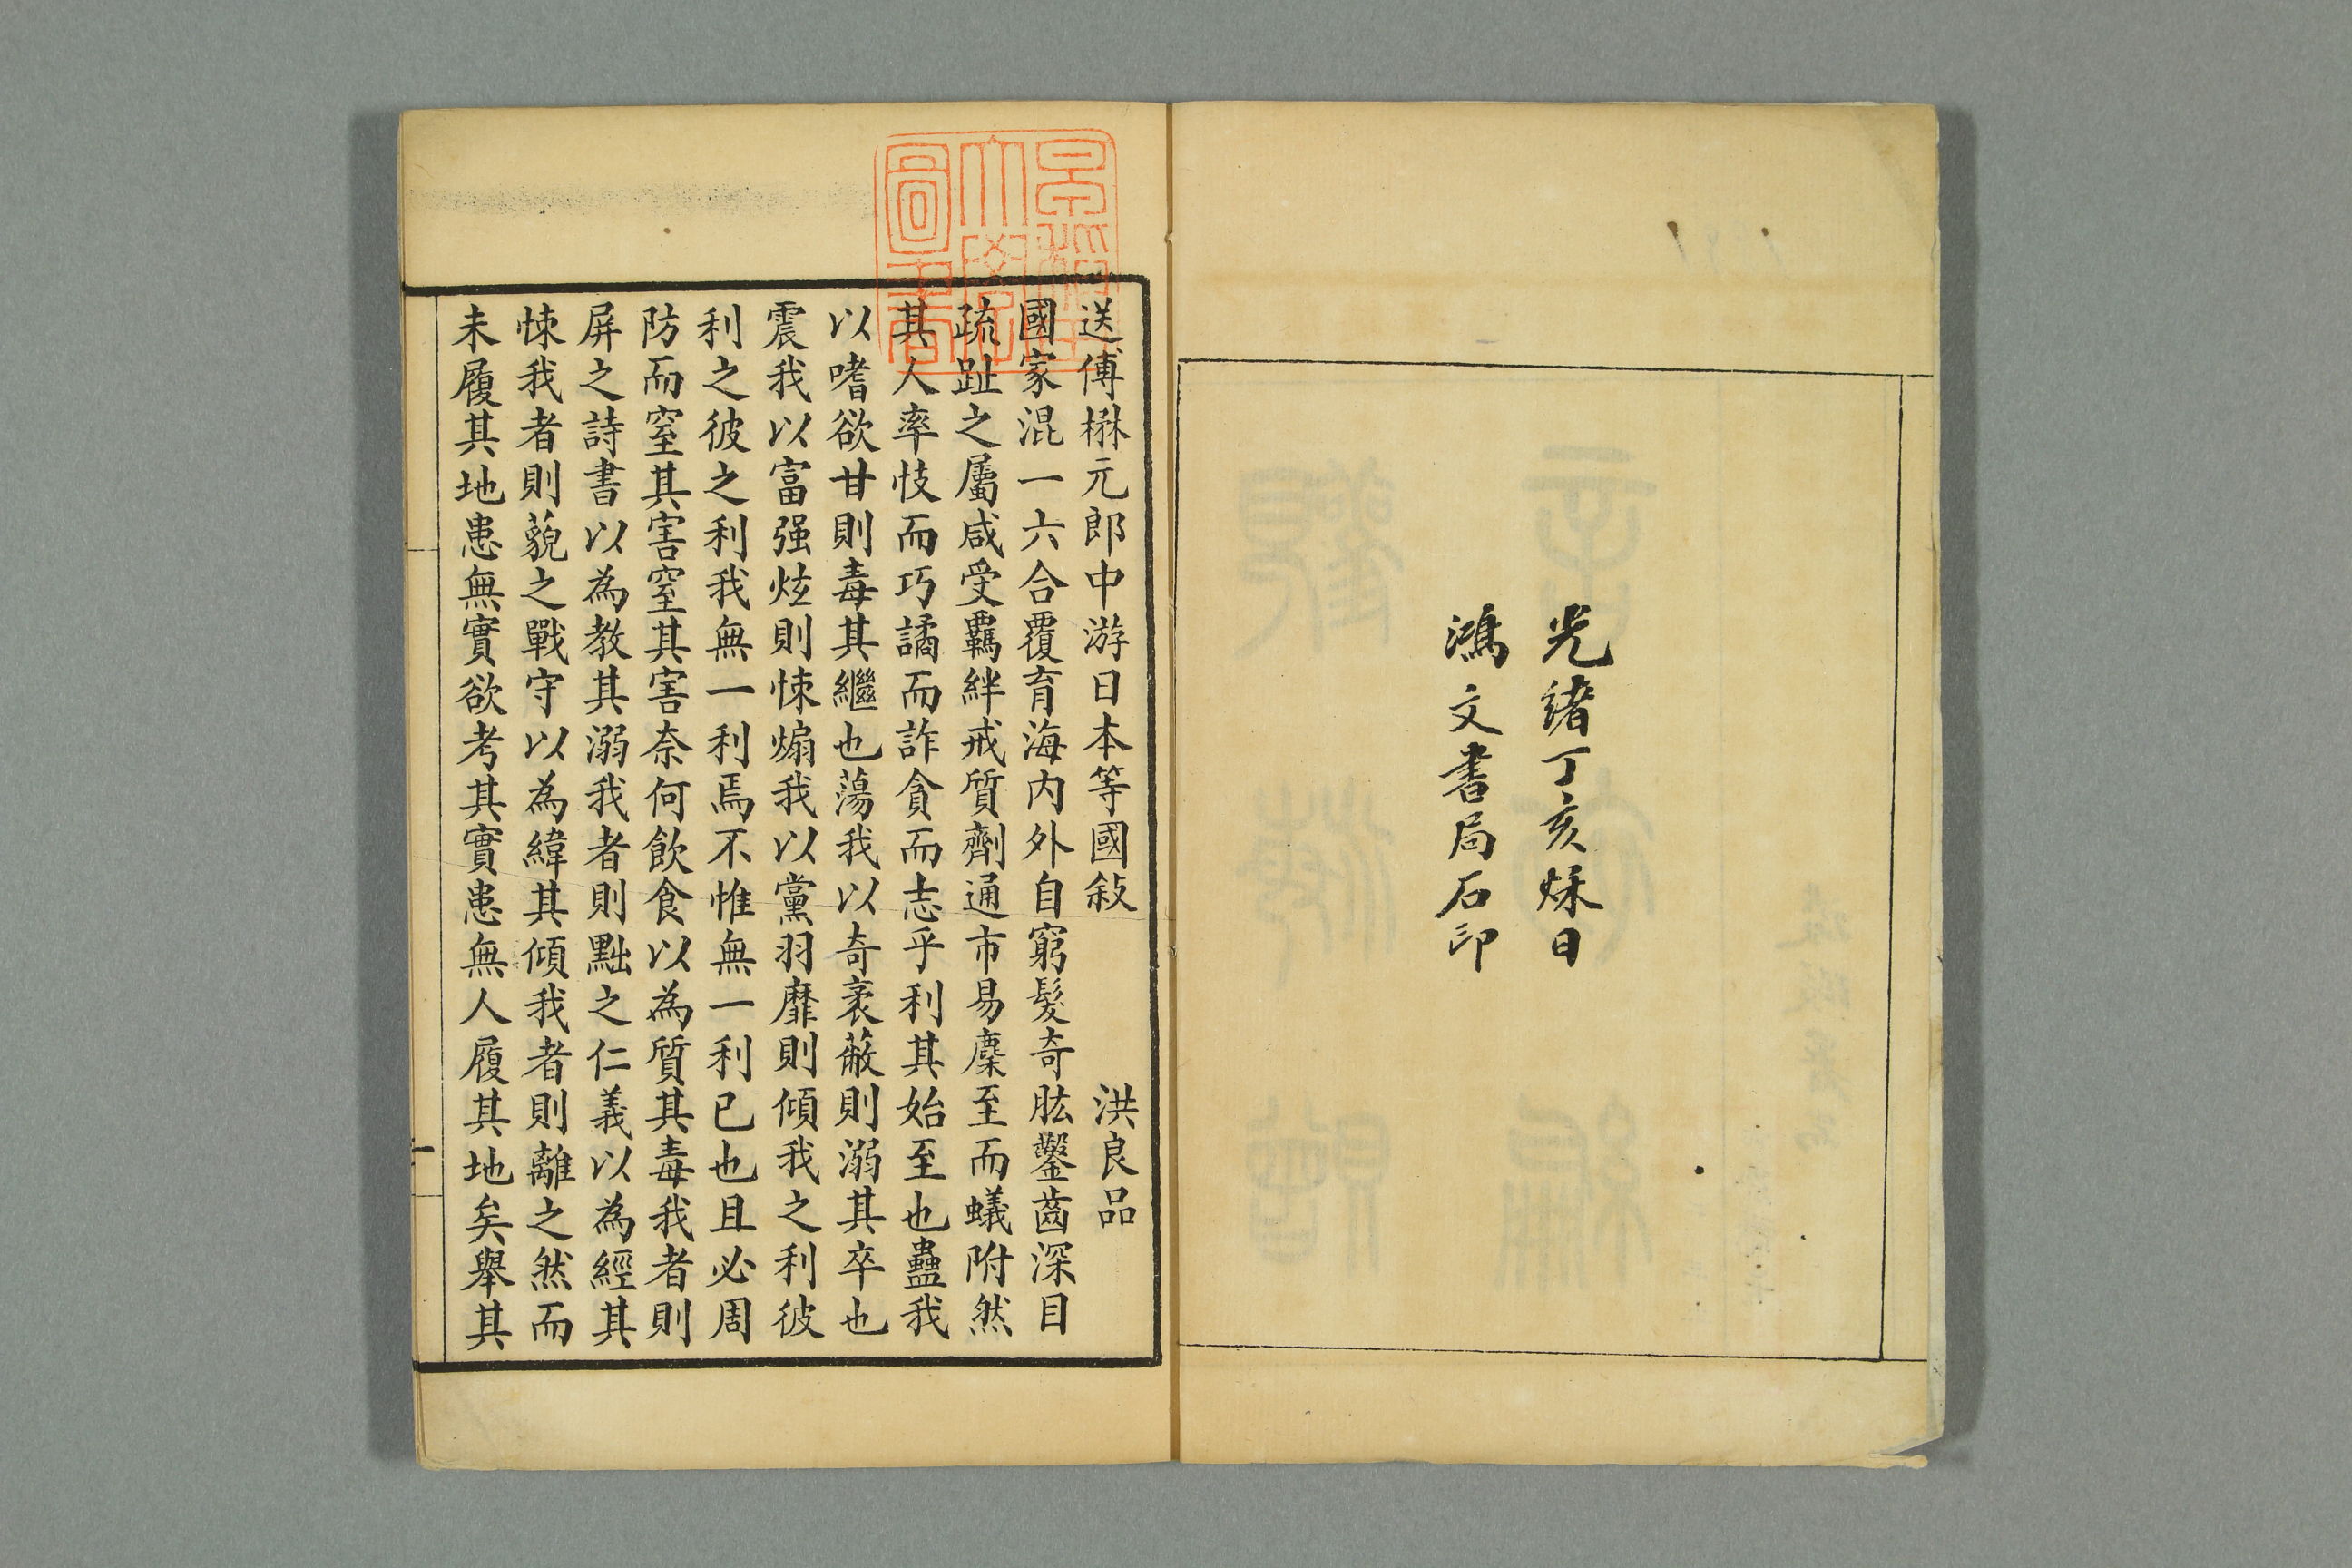 光緒丁亥烁日
鴻文書局石印
送傅楙元郎中游日本等國敍　洪良品
國家混一六合覆育海内外自窮髮奇肱鑿齒深目
疏趾之屬咸受羈絆戒質劑通市易麇至而蟻附然
其人率忮而巧譎而詐貪而志乎利其始至也蠱我
以嗜欲甘則毒其繼也蕩我以奇衺蔽則溺其卒也
震我以富强炫則悚煽我以黨羽靡則傾我之利彼
利之彼之利我無一利焉不惟無一利已也且必周
防而窒其害窒其害奈何飲食以為質其毒我者則
屏之詩書以為教其溺我者則黜之仁義以為經其
悚我者則藐之戰守以為緯其傾我者則離之然而
未履其地患無實欲考其實患無人履其地矣舉其
景城大學圖書